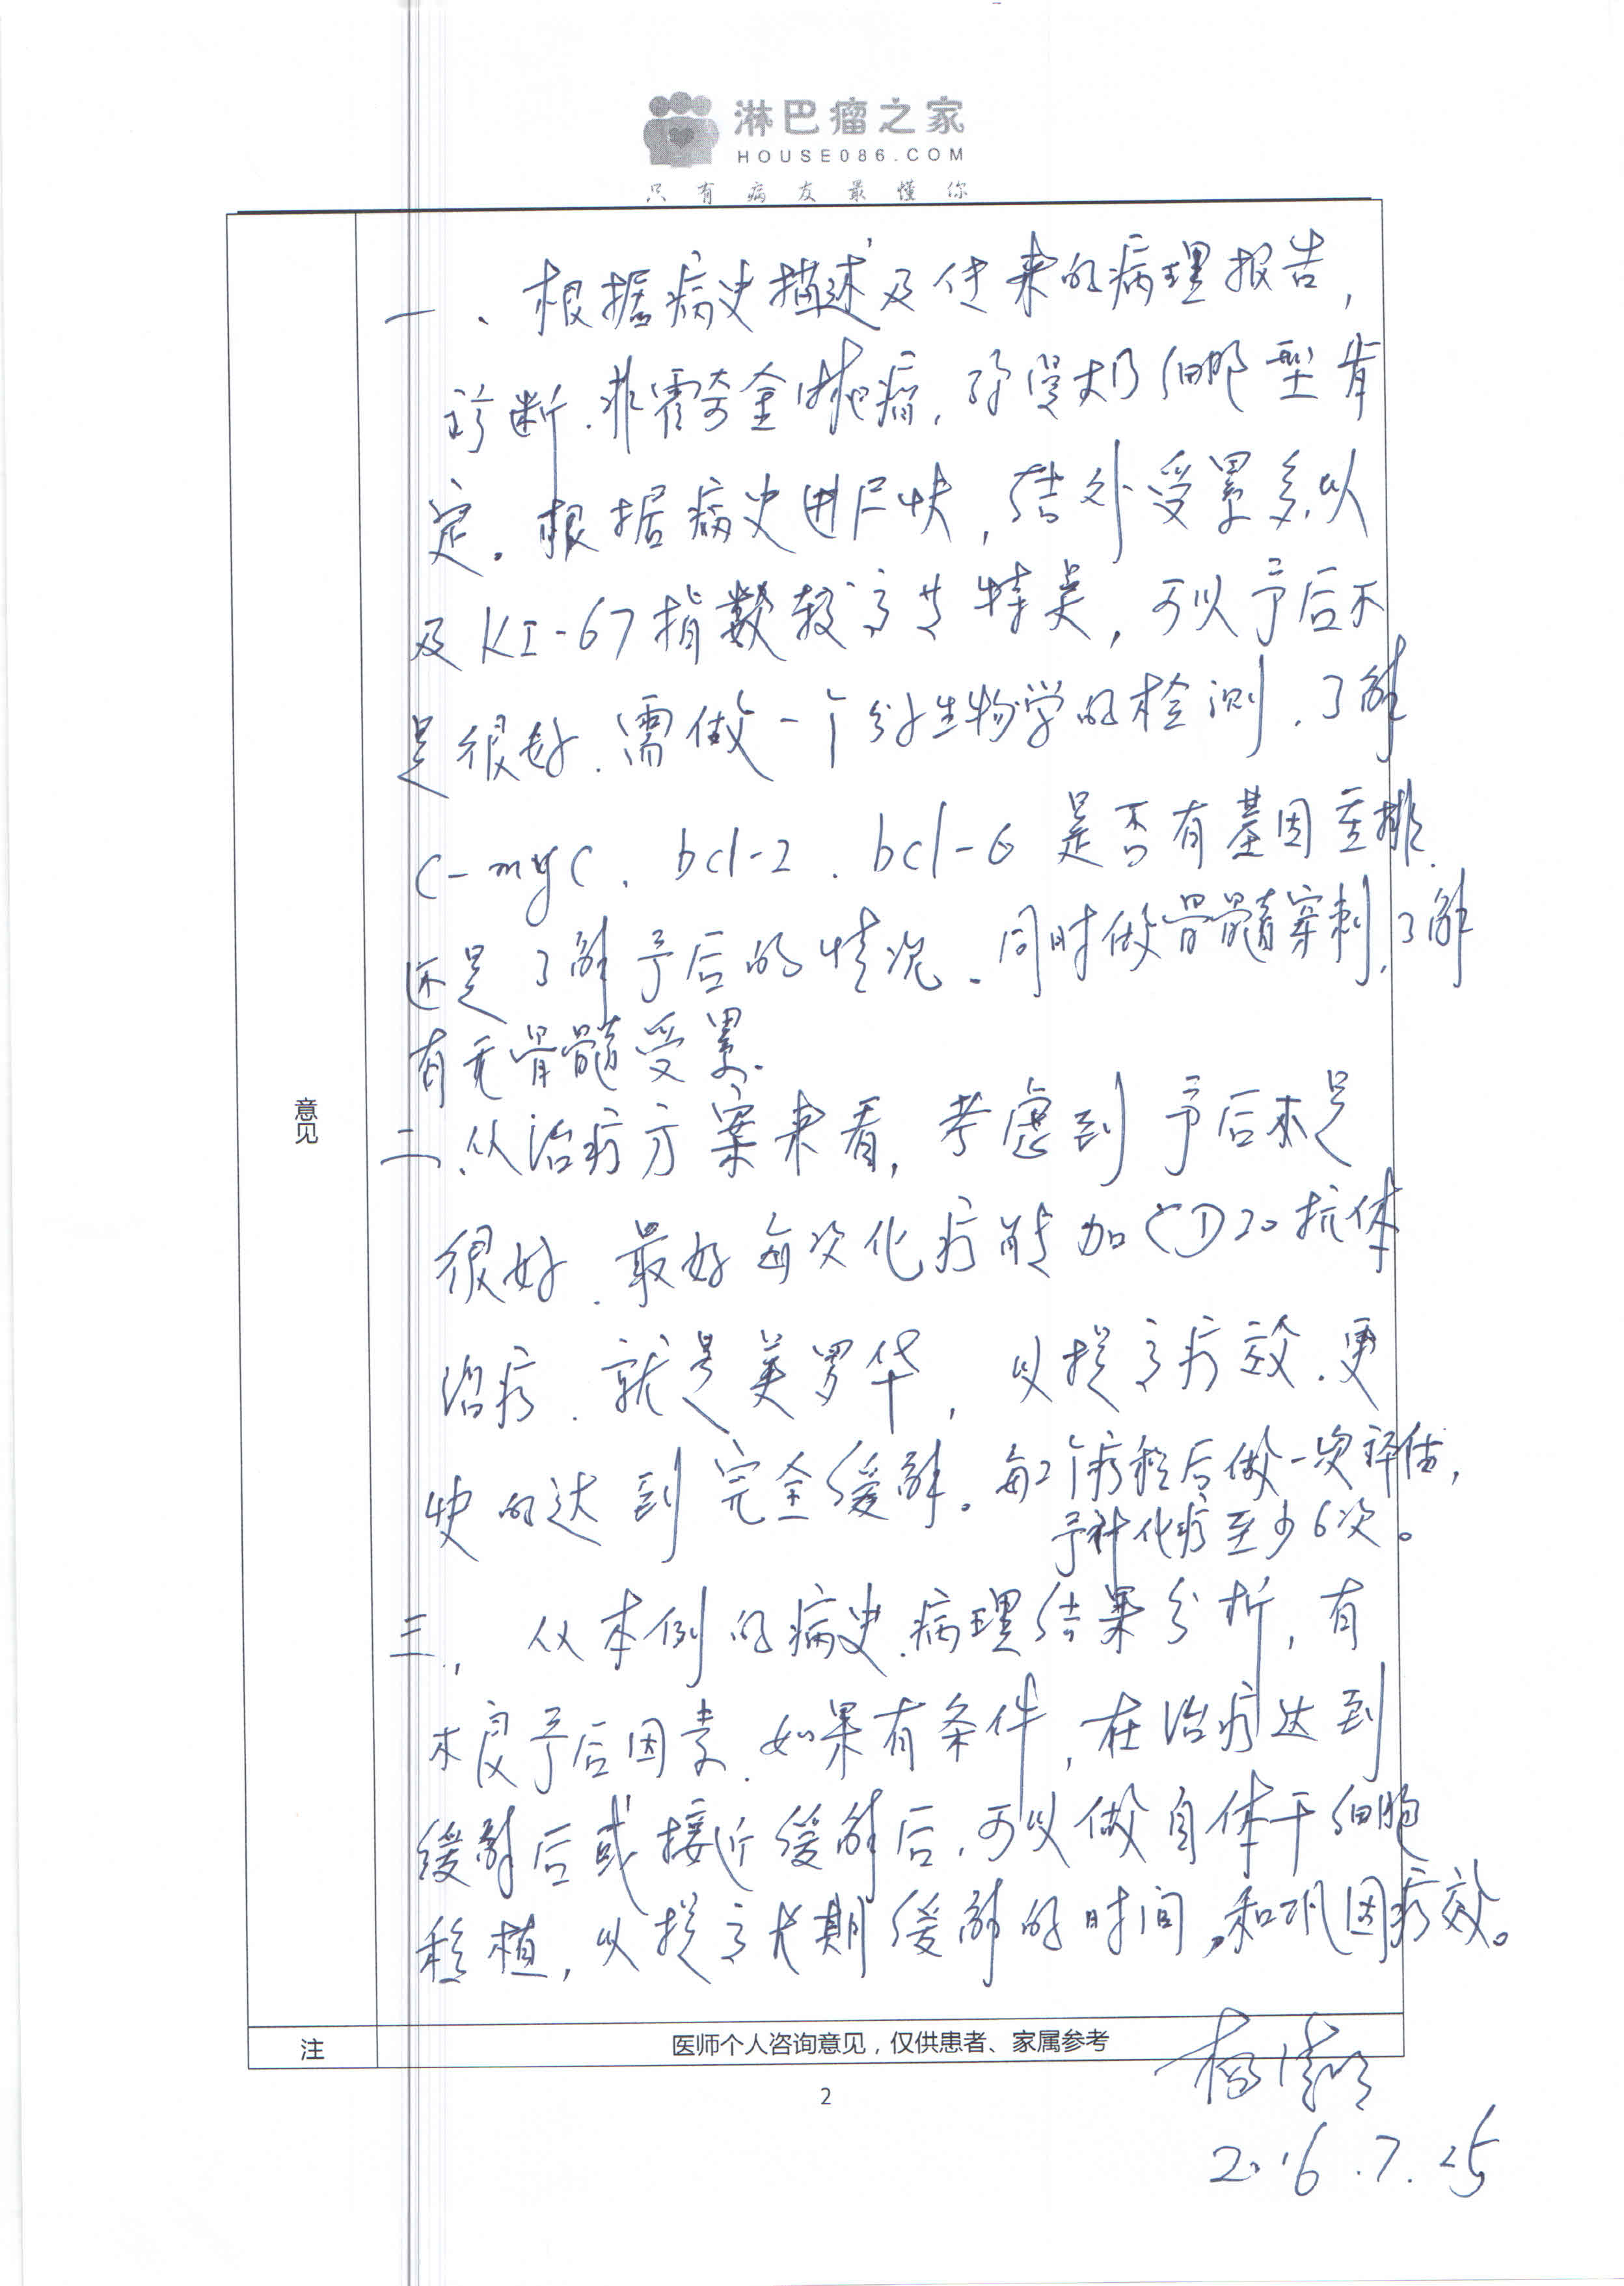 淋巴瘤之家
HOUSE086.COM
只有病友最懂你
意见
一、根据病史描述及传来的病理报告，
诊断.非霍奇金淋巴瘤，弥漫大B细胞型肯
定。根据病史进展快，结外受累多以
及KI-67指数较高等特点，可以予后不
是很好.需做一个分子生物学的检测.了解
c-myc.bcl-2.bcl-6是否有基因重排.
还是了解予后的情况.同时做骨髓穿刺，了解
有无骨髓受累.
二、从治疗方案来看，考虑到予后不是
很好.最好每次化疗能加CD20抗体
治疗.就是美罗华，以提高疗效.更
快的达到完全缓解。每2个疗程后做一次评估，
予计化疗至少6次。
三，从本例的病史.病理结果分析，有
不良予后因素.如果有条件，在治疗达到
缓解后或接近缓解后.可以做自体干细胞
移植，以提高长期缓解的时间，和巩固疗效。
注
医师个人咨询意见，仅供患者、家属参考
2
2016.7.25